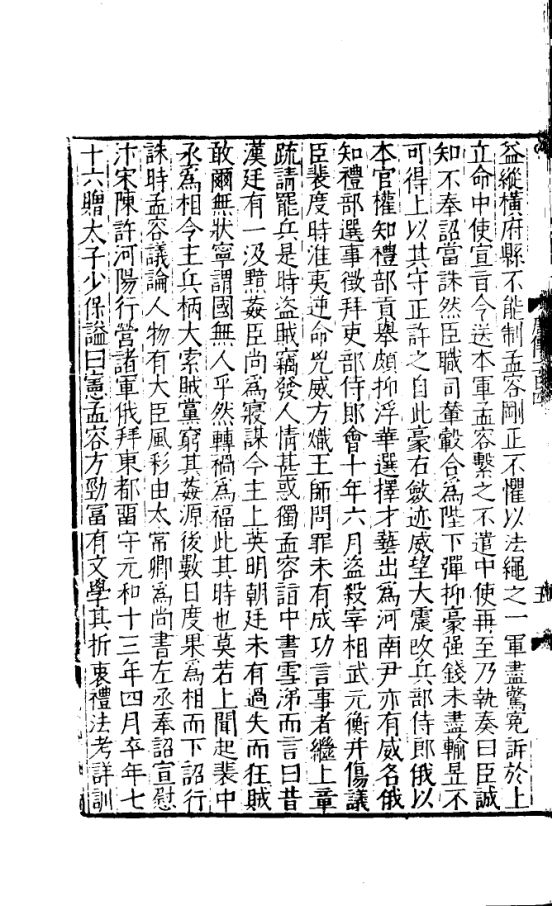 益縱橫府縣不能制孟容剛正不懼以法繩之一軍盡驚冤訴於上
立命中使宣旨令送本軍孟容繫之不遣中使再至乃執奏曰臣誠
知不奉詔當誅然臣職司輦轂合爲陛下彈抑豪强錢未盡輸昱不
可得上以其守正許之自此豪右斂迹威望大震改兵部侍郎俄以
本官權知禮部貢舉頗抑浮華選擇才藝出爲河南尹亦有威名俄
知禮部選事徵拜吏部侍郎會十年六月盜殺宰相武元衡并傷議
臣裴度時淮夷逆命兇威方熾王師問罪未有成功言事者繼上章
疏請罷兵是時盜賊竊發人情甚惑獨孟容詣中書雪涕而言曰昔
漢廷有一汲黯姦臣尚爲寢謀今主上英明朝廷未有過失而狂賊
敢爾無狀寧謂國無人乎然轉禍爲福此其時也莫若上聞起裴中
丞爲相令主兵柄大索賊黨窮其姦源後數日度果爲相而下詔行
誅時孟容議論人物有大臣風彩由太常卿爲尚書左丞奉詔宣慰
汴宋陳許河陽行營諸軍俄拜東都畱守元和十三年四月卒年七
十六贈太子少保謚曰憲孟容方勁富有文學其折衷禮法考詳訓